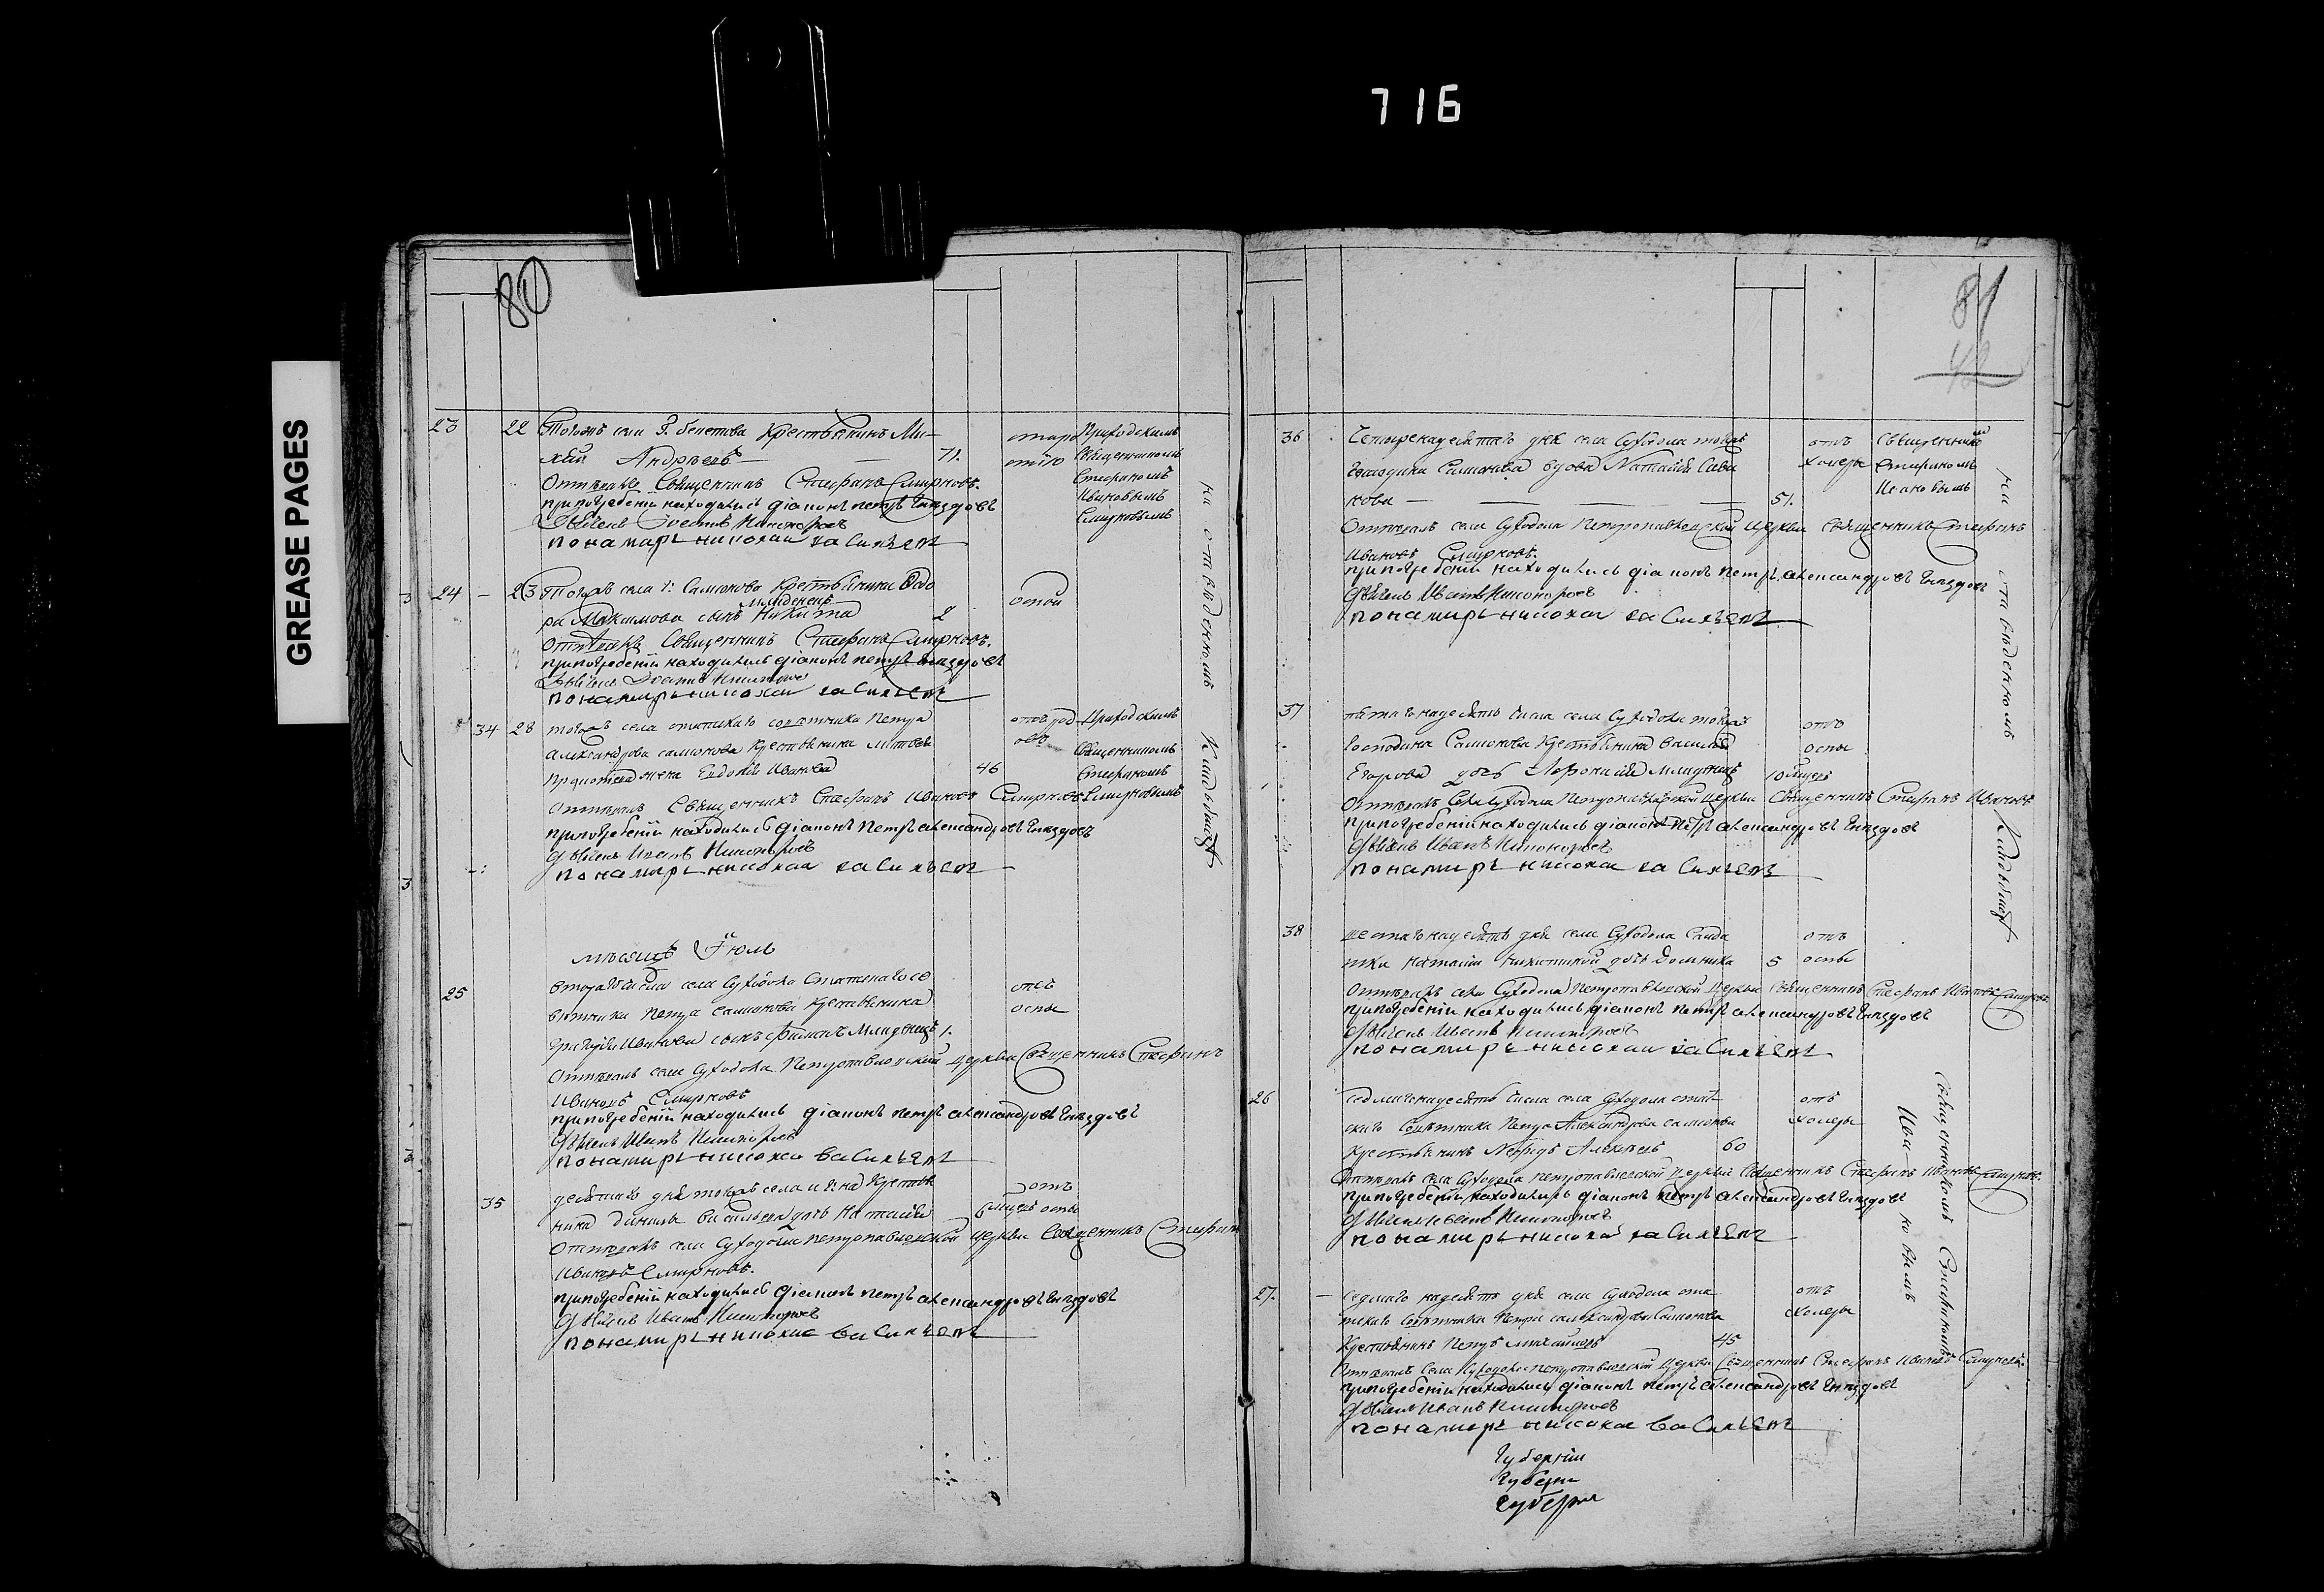 716
GREASE PAGES
80
23 22 Тогожъ села Г. Крестьянинъ Ми-
Андреевъ — 71.
Приходскимъ
Священникомъ
Стефаномъ
Ивановымъ
Смирновымъ
Отпевалъ Священникъ Стефанъ Смирновъ.
при погребенiи находились дiаконъ петръ
Дьячекъ Никифоровъ
пономарь николай васильевъ
на отведенномъ кладбищѣ
24 — 23 Тогожъ села Г: Самсонова Крестьянина Ѳедо
ра Максимова сынъ младенецъ Никита 2
оспы
Отпевалъ Священникъ Стефанъ Смирновъ.
при погребенiи находились дiаконъ петръ
пономарь николай васильевъ
34 28 тогожъ села статскаго советника Петра
Александрова самсонова Крестьянина
жена Евдокiя Иванова 46
отъ родовъ
Приходскимъ
Священникомъ
Стефаномъ
Смирновымъ
Отпевалъ Священникъ Стефанъ Ивановъ Смирновъ
при погребенiи находились дiаконъ петръ александровъ
Дьячекъ Иванъ Никифоровъ
пономарь николай васильевъ
месяцъ Iюль
25
втораго числа села Суходола Статскаго со
ветника Петра самсонова Крестьянина
Григорiя Иванова сынъ Младенецъ 1.
отъ
оспы
Отпевалъ села Суходола Петропавловской церкви Священникъ Стефанъ
Ивановъ Смирновъ
при погребенiи находились дiаконъ петръ александровъ
Дьячекъ Иванъ Никифоровъ
пономарь николай васильевъ
35
десятаго дня тогожъ села Крестья
нина данилы васильева дочь Наталiя 6 месяцъ
отъ
оспы
Отпевалъ села Суходола петропавловской церкви Священникъ Стефанъ
Ивановъ Смирновъ.
при погребенiи находились дiаконъ петръ александровъ
Дьячекъ Иванъ Никифоровъ
пономарь николай васильевъ
81
42
36
Четырнадесятаго дня села Суходола тогожъ
Господина Самсонова вдова Наталiя Сава
нова — 51.
отъ
холеры
Священникомъ
Стефаномъ
Ивановымъ
Отпевалъ села Суходола петропавловской церкви священникъ Стефанъ
Ивановъ Смирновъ.
при погребенiи находились дiаконъ петръ александровъ
Дьячекъ Иванъ Никифоровъ
пономарь николай васильевъ
на отведенномъ Кладбищѣ
37
пятагонадесять числа села Суходола тогожъ
Господина Самсонова Крестьянина василья
Егорова дочь младенецъ 10 месяцъ
отъ
оспы
Отпевалъ села Суходола Петропавловской церкви Священникъ Стефанъ Ивановъ
при погребенiи находились дiаконъ петръ александровъ
Дьячекъ Иванъ Никифоровъ
пономарь николай васильевъ
38
шестагонадесять дня села Суходола Солда
тки Наталiи Никитиной дочь Домника 5
отъ
оспы
Отпевалъ села Суходола Петропавловской церкви Священникъ Стефанъ Ивановъ Смирновъ.
при погребенiи находились дiаконъ петръ александровъ
Дьячекъ Иванъ Никифоровъ
пономарь николай васильевъ
26
Седмагонадесять числа села Суходола стат
скаго Советника Петра Александрова самсонова
Крестьянинъ Алексеевъ 60
отъ
холеры
Отпевалъ села Суходола петропавловской церкви Священникъ Стефанъ Ивановъ Смирновъ.
при погребенiи находились дiаконъ петръ александровъ
Дьячекъ Иванъ Никифоровъ
пономарь николай васильевъ
Священникомъ Стефаномъ
Ивановымъ
27. —
седмаго надесять дня села Суходола ста
тскаго Советника Петра александрова Самсонова
Крестьянинъ Петръ михайловъ 45
отъ
холеры
Отпевалъ Села Суходола петропавловской церкви Священникъ Стефанъ Ивановъ Смирновъ.
при погребенiи находились дiаконъ петръ александровъ
Дьячекъ Иванъ Никифоровъ
пономарь николай васильевъ
Губернiи
Губерни
Губерни